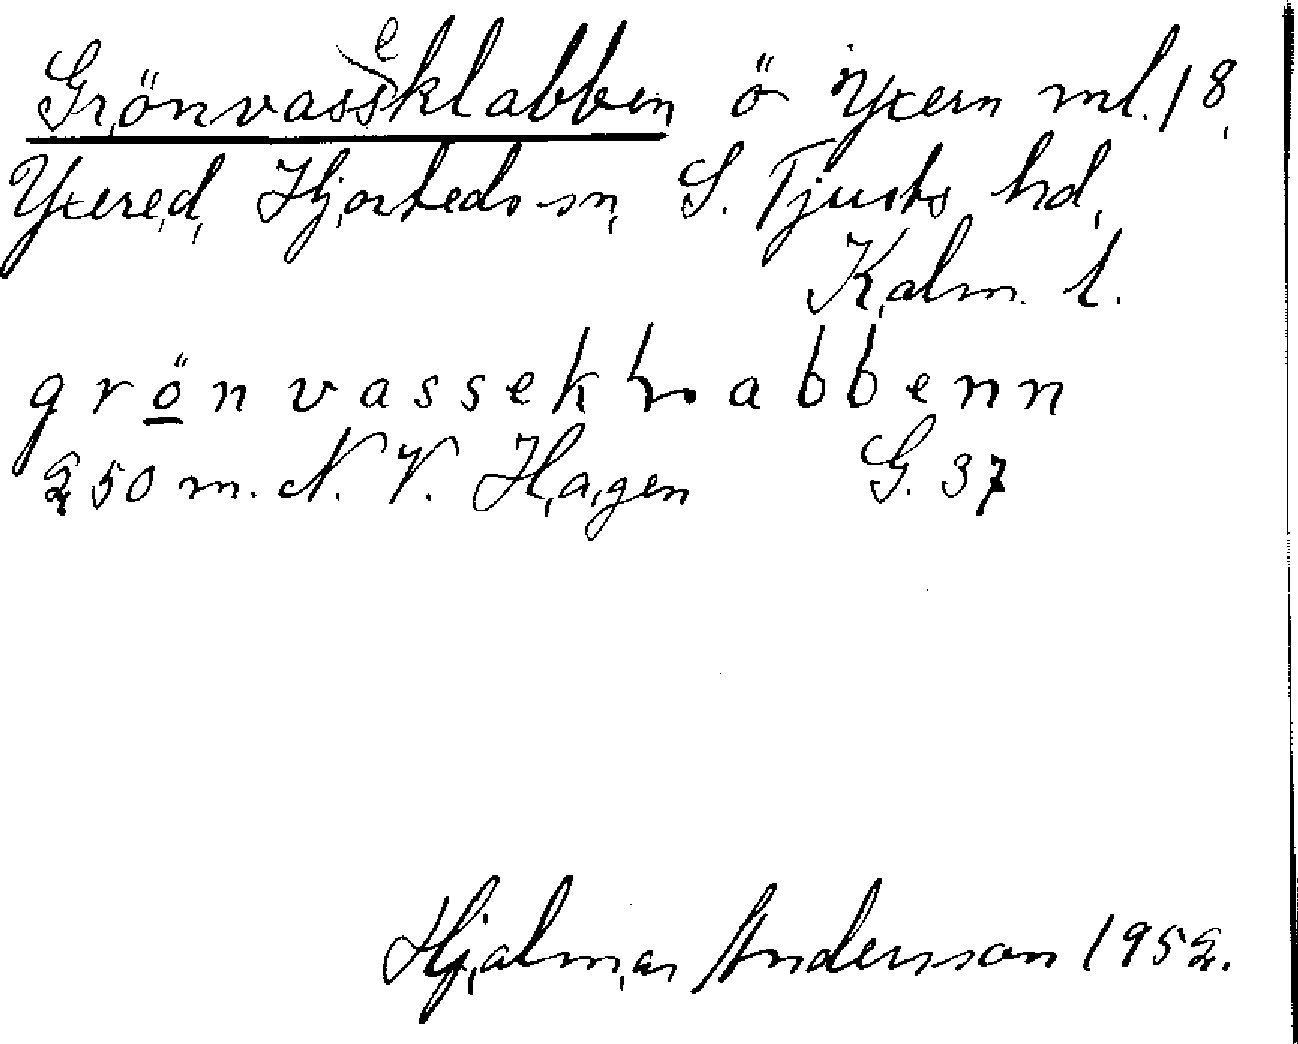 Grönvasseklabben ö Yxern ml. 18,
Yxered, Hjorteds sn, S. Tjusts hd,
Kalm. l.
grönvassekLabbenn
250 m. N. V. Hagen G. 37
Hjalmar Andersson 1952.